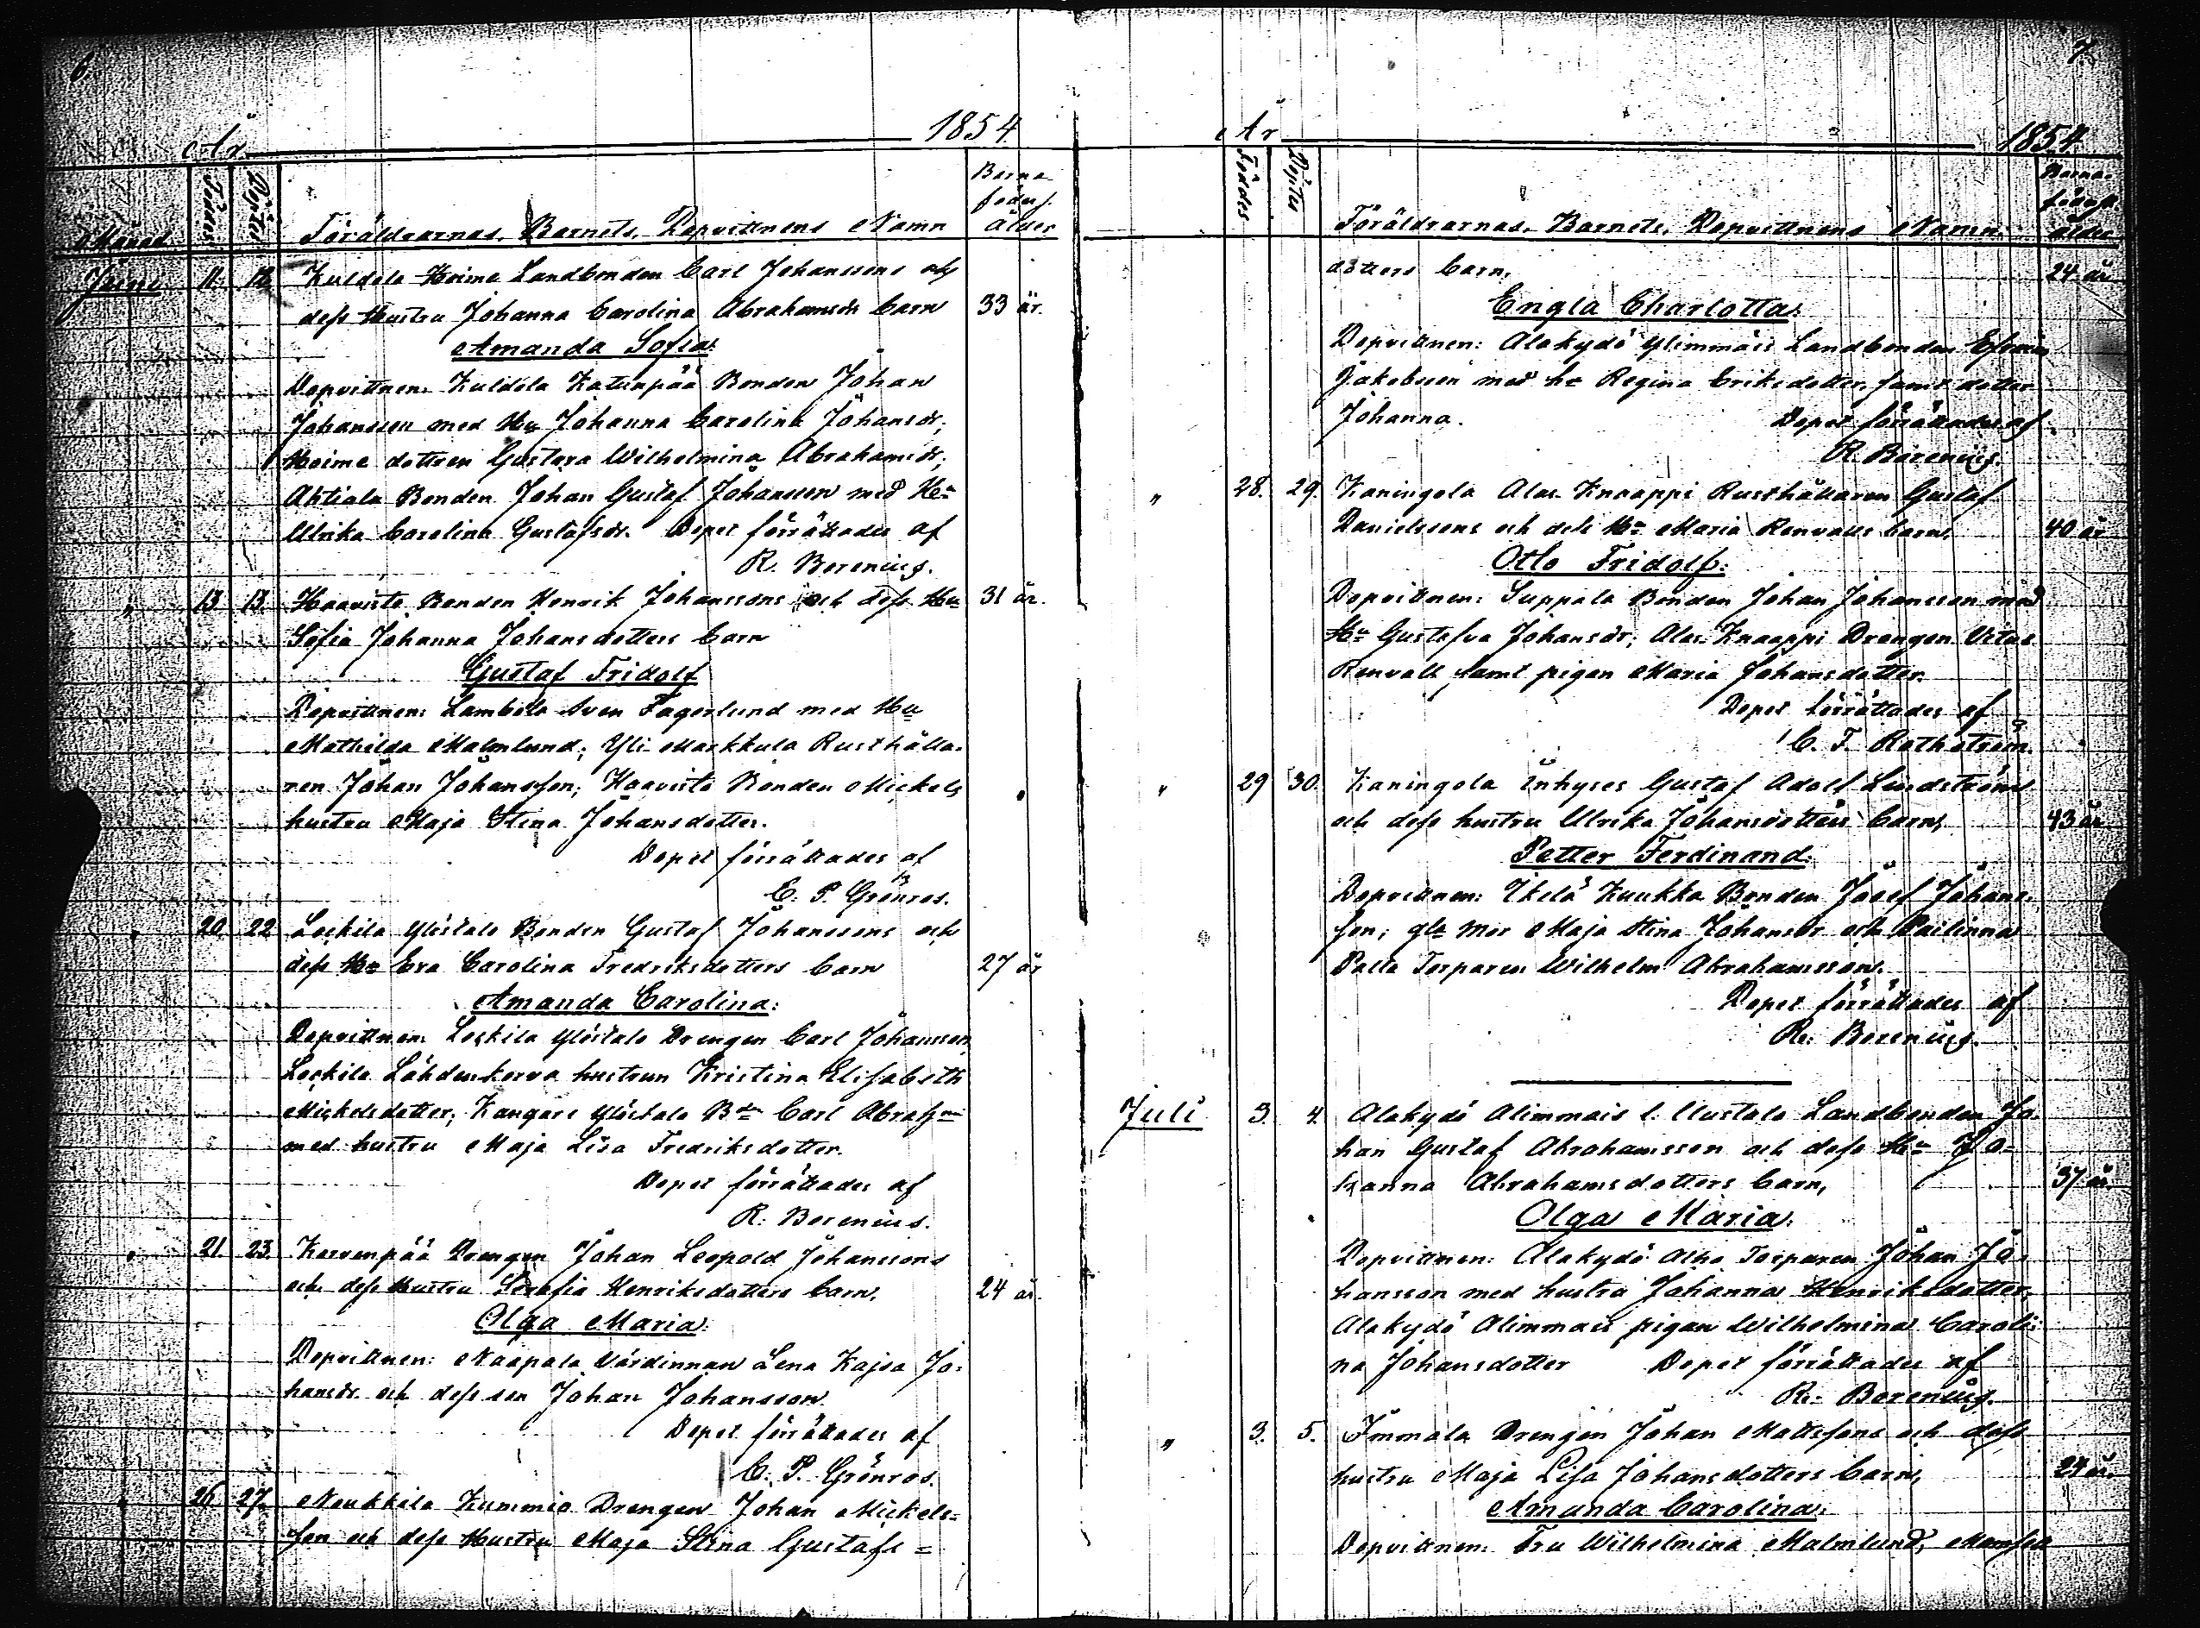 6.
År 1854
Månad Födes Döptes Föräldrarnas, Barnets, Dopvittnens Namn Barna föders. ålder
Juni 11. 12. Kuldola Heime Landbonden Carl Johanssons och
dess Hustru Johanna Carolina Abrahamsdr barn 33 år.
Amanda Sofia.
Dopvittnen: Kuldola Katunpää Bonden Johan
Johansson med Hu Johanna Carolina Johansdr;
Heime dottren Gustava Wilhelmina Abrahamsdr;
Ahtiala Bonden Johan Gustaf Johansson med Hu
Ulrika Carolina Gustafsdr. Dopet förrättades af
R. Berenius.
" 13 13 Haavisto Bonden Henrik Johanssons och dess Hu 31 år.
Sofia Johanna Johansdotters barn
Gustaf Fridolf
Dopvittnen: Lambola Sven Fagerlund med Hu
Mathilda Malmlund; Yli Markkula Rusthålla-
ren Johan Johansson; Haavisto Bonden Mickels
hustru Maja Stina Johansdotter.
Dopet förrättades af
C. P. Grönros.
" 20. 22 Leikila Ylöstalo Bonden Gustaf Johanssons och
dess Hu Eva Carolina Fredriksdotters barn 27 år
Amanda Carolina:
Dopvittnen: Leikila Ylöstalo Drengen Carl Johansson
Leikila Lähdenkorva hustrun Kristina Elisabeth
Mickelsdotter; Kangars Ylöstalo Bdn Carl Abrahsn
med hustru Maja Lisa Fredriksdotter.
Dopet förrättades af
R. Berenius.
" 21 23. Korvenpää Drengen Johan Leopold Johanssons
och dess Hustru Serafia Henriksdotters barn. 24 år.
Olga Maria.
Dopvittnen: Naapala Värdinnan Lena Kajsa Jo-
hansdr. och dess son Johan Johansson.
Dopet förrättades af
C. P. Grönros.
" 26 27. Neukkila Kummio Drengen Johan Mickels-
son och dess Hustru Maja Stina Gustafs=
7.
År 1854.
Födes Döptes Föräldrarnas, Barnets, Dopvittnens Namn Barna- föders ålder
dotters barn, 24 år
Engla Charlotta.
Dopvittnen: Alakydö Ylimmäis Landbonden Efraim
Jakobsson med hu Regina Eriksdotter, samt dotter
Johanna. Dopet förrättades af
R. Berenius.
" 28. 29. Kaningola Alas-Knaappi Rusthållaren Gustaf
Danielssons och dess Hu Maria Renvalls barn, 40 år
Otto Fridolf:
Dopvittnen: Suppala Bonden Johan Johansson med
Hu Gustafva Johansdr; Alas-Knaappi Drengen Vitus
Renvall samt pigan Maria Johansdotter.
Dopet förrättades af
C. F. Rothström.
" 29 30. Kaningola Inhyses Gustaf Adolf Lindströms
och dess hustru Ulrika Johansdotters barn, 43 år
Petter Ferdinand.
Dopvittnen: Ikelä Kuukka Bonden Josef Johans-
son; gla mor Maja Stina Johansdr och Pailinna
Palta Torparen Wilhelm Abrahamsson.
Dopet förrättades af
R. Berenius.
Juli 3. 4. Alakydö Alimmais l. Uustalo Landbonden Jo-
han Gustaf Abrahamsson och dess Hu Jo=
hanna Abrahamsdotters barn, 37 år
Olga Maria.
Dopvittnen: Alakydö Alho Torparen Johan Jo-
hansson med hustru Johanna Henriksdotter,
Alakydö Alimmais pigan Wilhelmina Caroli-
na Johansdotter Dopet förrättades af
R. Berenius.
" 3. 5. Immala Drengen Johan Mattssons och dess
hustru Maja Lisa Johansdotters barn, 27 år
Amanda Carolina.
Dopvittnen: Fru Wilhelmina Malmlund, Mamsell